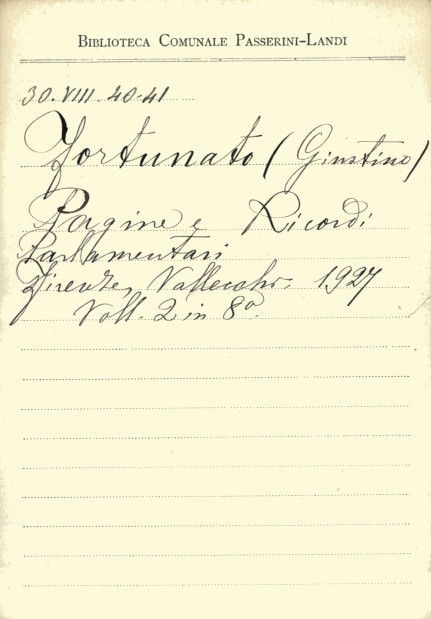 BIBLIOTECA COMUNALE PASSERINI-LANDI
30.VIII.40-41
Fortunato (Giustino)
Pagine e Ricordi
Parlamentari
Firenze, Vallecchi. 1927
Voll. 2 in 8º.